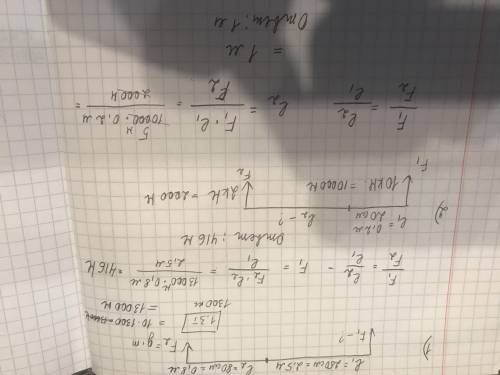 1) l₁ = 250 см = 2,5 м l₂ = 80 см = 0,8 м
F₁ - ? F₂ = g·m
1,3 т = 10 · 1300 = 13000 н
1300 кг
F₁/F₂ = l₂/l₁ - F₁ = F₂·l₂/l₁ = 13000 · 0,8 м/2,5 м = 416 Н
Ответ: 416 Н
2) l₁ = 0,2 м l₂ - ?
20 см
10 кН = 10000 Н 2 кН = 2000 Н
F₁ F₂
F₁/F₂ = l₂/l₁ l₂ = F₁·l₁/F₂ = 10000 Н · 0,2 м/2000 Н =
= 1 м
Ответ: 1 м